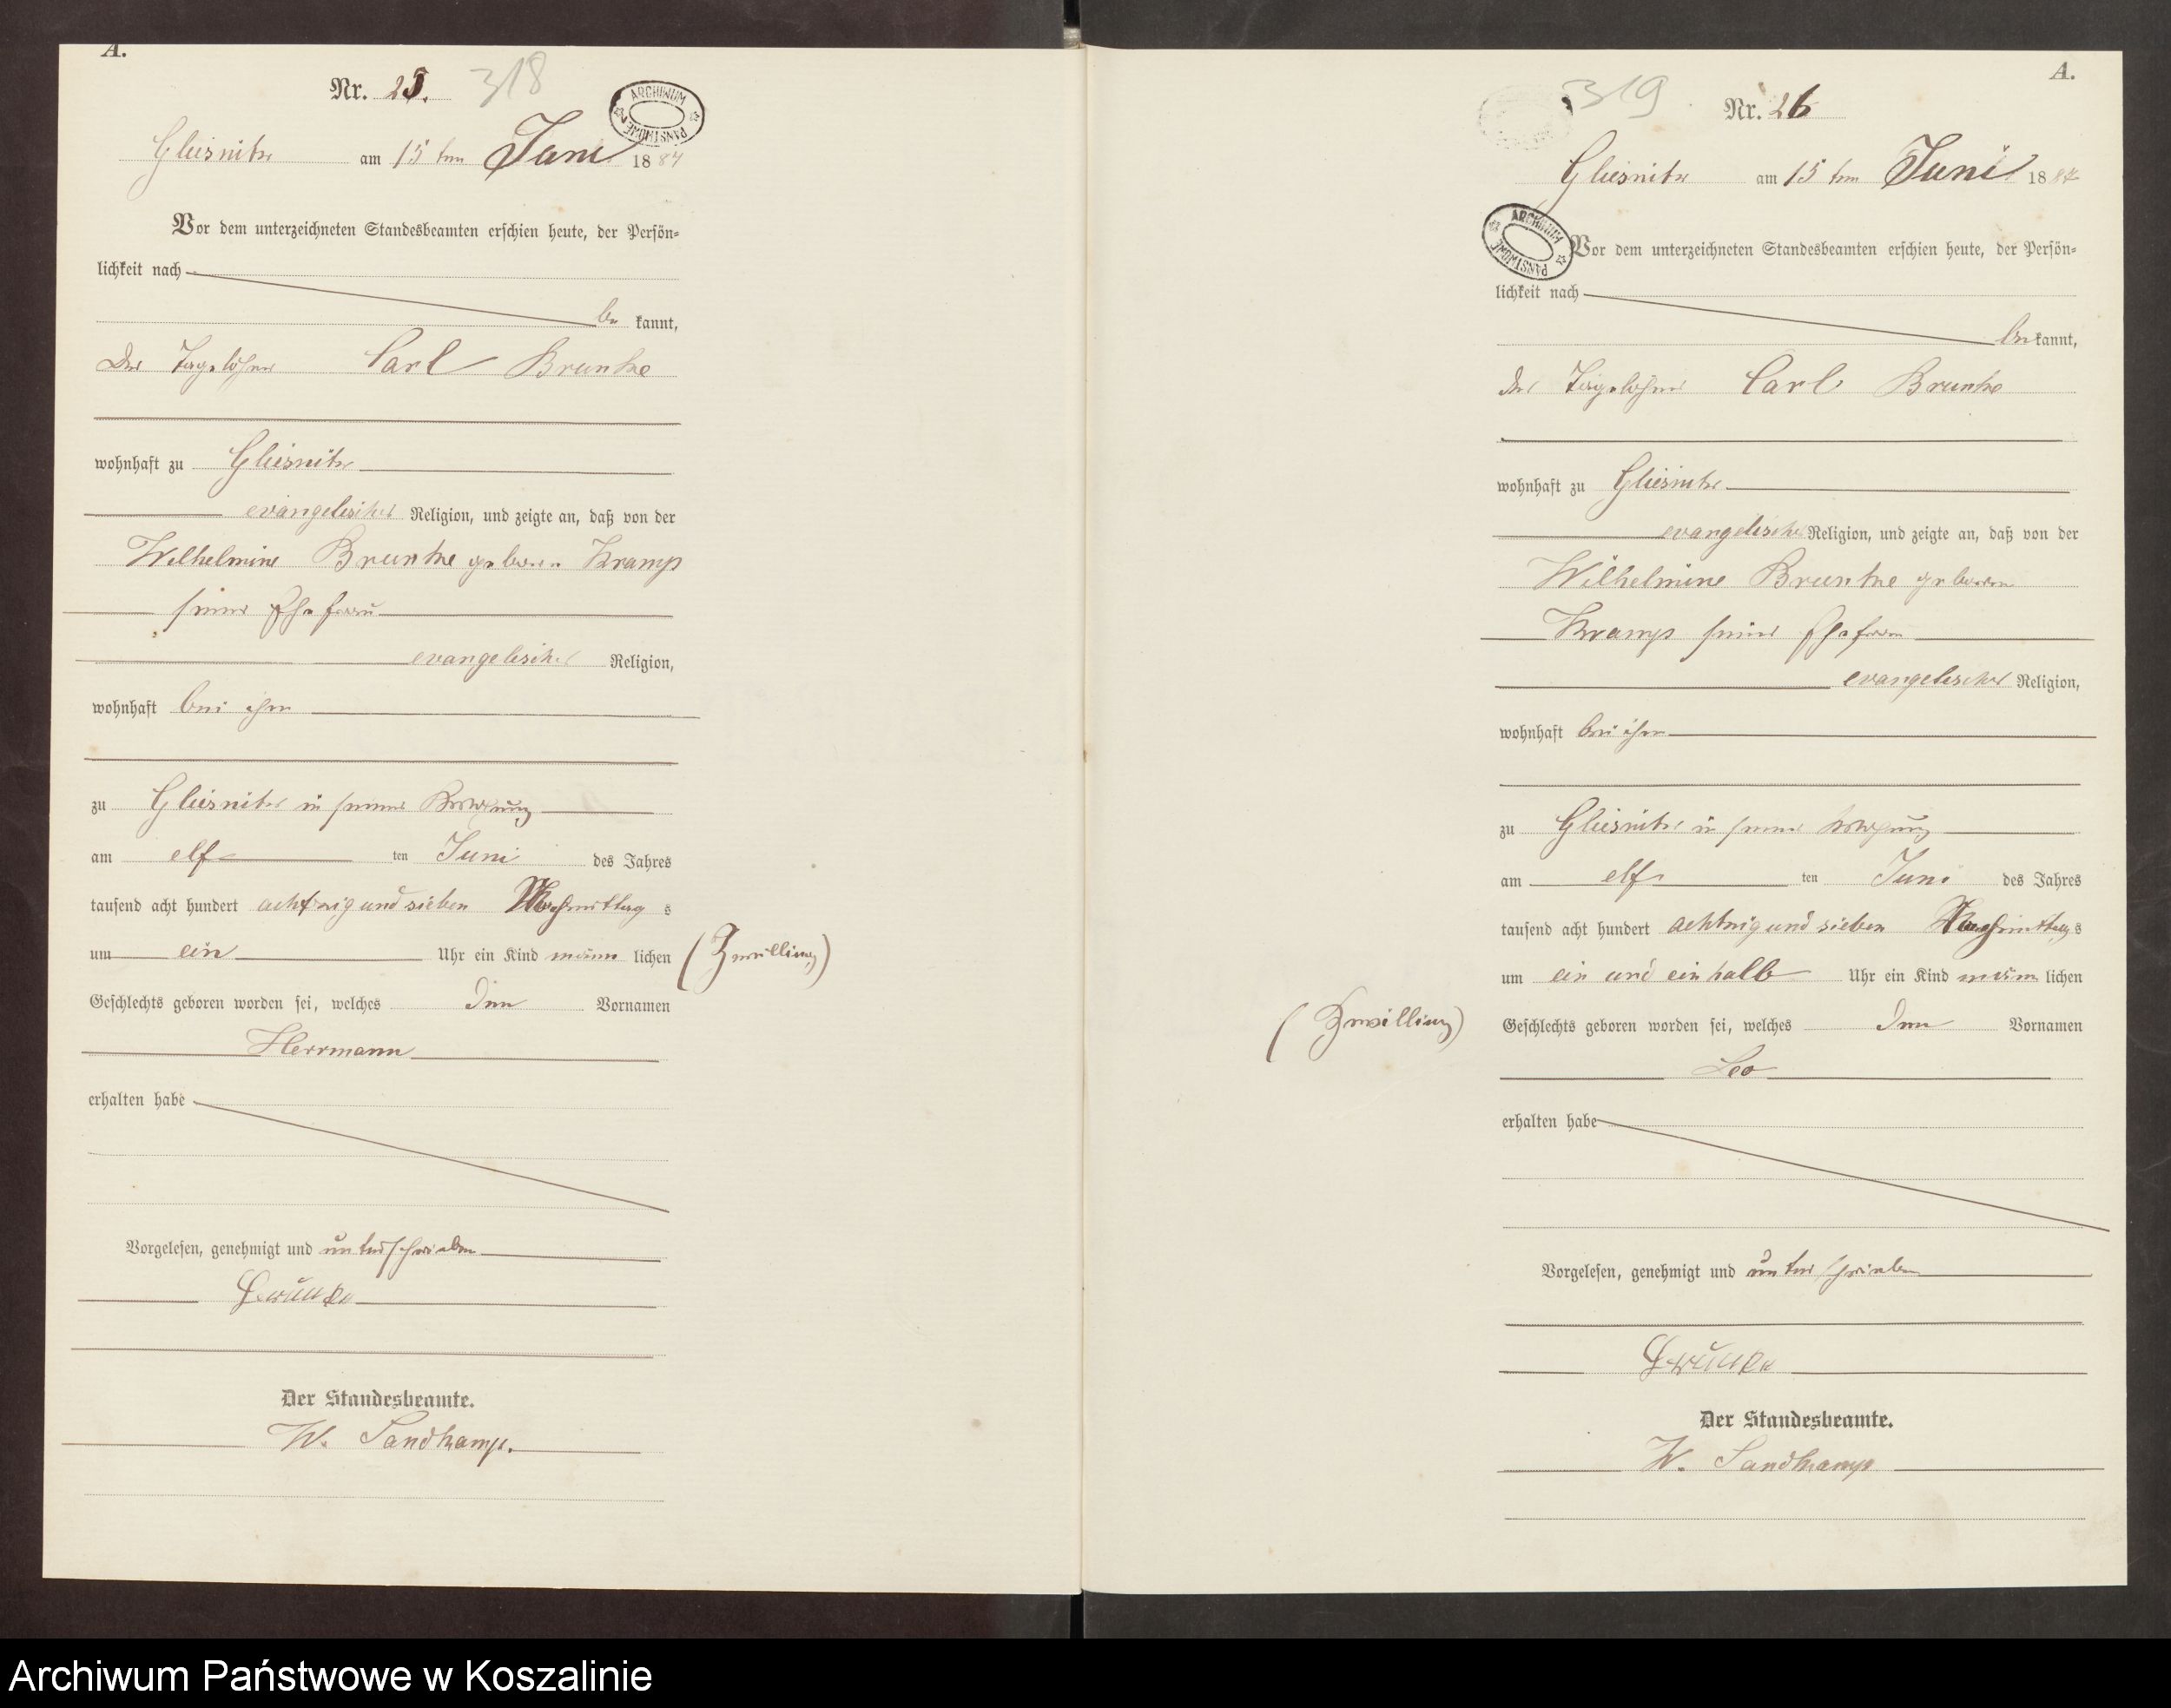 A.
Nr. 25. 318
ARCHIWUM PAŃSTWOWE
Gliesnitz am 15 ten Juni 1887
Vor dem unterzeichneten Standesbeamten erschien heute, der Persön-
lichkeit nach
be kannt,
Der Tagelöhner Carl Brunke
wohnhaft zu Gliesnitz
evangelischer Religion, und zeigte an, daß von der
Wilhelmine Brunke geboren Kramp
seiner Ehefrau
evangelischer Religion,
wohnhaft bei ihm
zu Gliesnitz in seiner Wohnung
am elf ten Juni des Jahres
tausend acht hundert achtzig und sieben Nachmittag s
um ein Uhr ein Kind männ lichen (Zwilling)
Geschlechts geboren worden sei, welches den Vornamen
Herrmann
erhalten habe
Vorgelesen, genehmigt und unterschrieben
Brunke
Der Standesbeamte.
W. Sandkamp.
A.
319 Nr. 26
Gliesnitz am 15 ten Juni 1887
ARCHIWUM PAŃSTWOWE
Vor dem unterzeichneten Standesbeamten erschien heute, der Persön-
lichkeit nach
be kannt,
der Tagelöhner Carl Brunke
wohnhaft zu Gliesnitz
evangelischer Religion, und zeigte an, daß von der
Wilhelmine Brunke geboren
Kramp seiner Ehefrau
evangelischer Religion,
wohnhaft bei ihm
zu Gliesnitz in seiner Wohnung
am elf ten Juni des Jahres
tausend acht hundert achtzig und sieben Nachmittag s
um ein und ein halb Uhr ein Kind männ lichen
(Zwilling) Geschlechts geboren worden sei, welches den Vornamen
Leo
erhalten habe
Vorgelesen, genehmigt und unterschrieben
Brunke
Der Standesbeamte.
W. Sandkamp
Archiwum Państwowe w Koszalinie